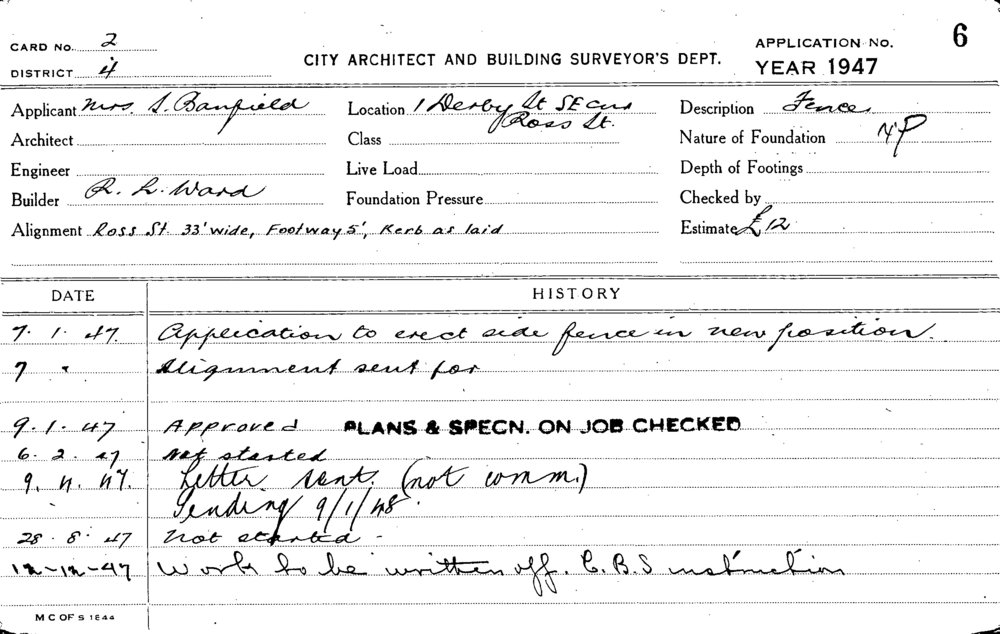 CARD No. 2
DISTRICT 4
CITY ARCHITECT AND BUILDING SURVEYOR'S DEPT.
APPLICATION No. 6
YEAR 1947
Applicant Mrs. S. Banfield
Location 1 Derby St SE cnr
Ross St.
Description Fence
Architect
Class
Nature of Foundation
Engineer
Live Load
Depth of Footings
Builder R. L. Ward
Foundation Pressure
Checked by
Alignment Ross St 33' wide, Footway 5', Kerb as laid
Estimate £12
DATE HISTORY
7. 1. 47. Application to erect side fence in new position.
7 " Alignment sent for
9. 1. 47 Approved PLANS & SPECN. ON JOB CHECKED
6. 2. 47 Not started
Letter sent. (not comm.)
Pending 9/1/48.
28. 8. 47 Not started -
12-12-47 Work to be written off. C.B.S instruction
M C OF S 1844